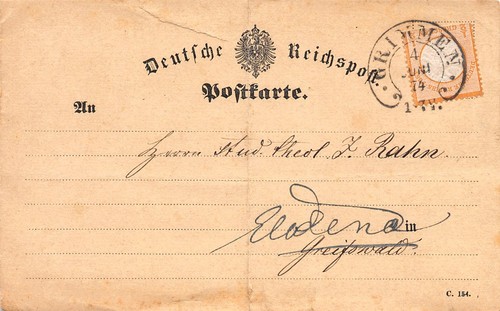 Deutsche Reichspost
Postkarte.
GRIMMEN
4
JUNI
74
An
Herrn Stud. theol. J. Rahn.
Eldena in
Greifswald.
C. 154.